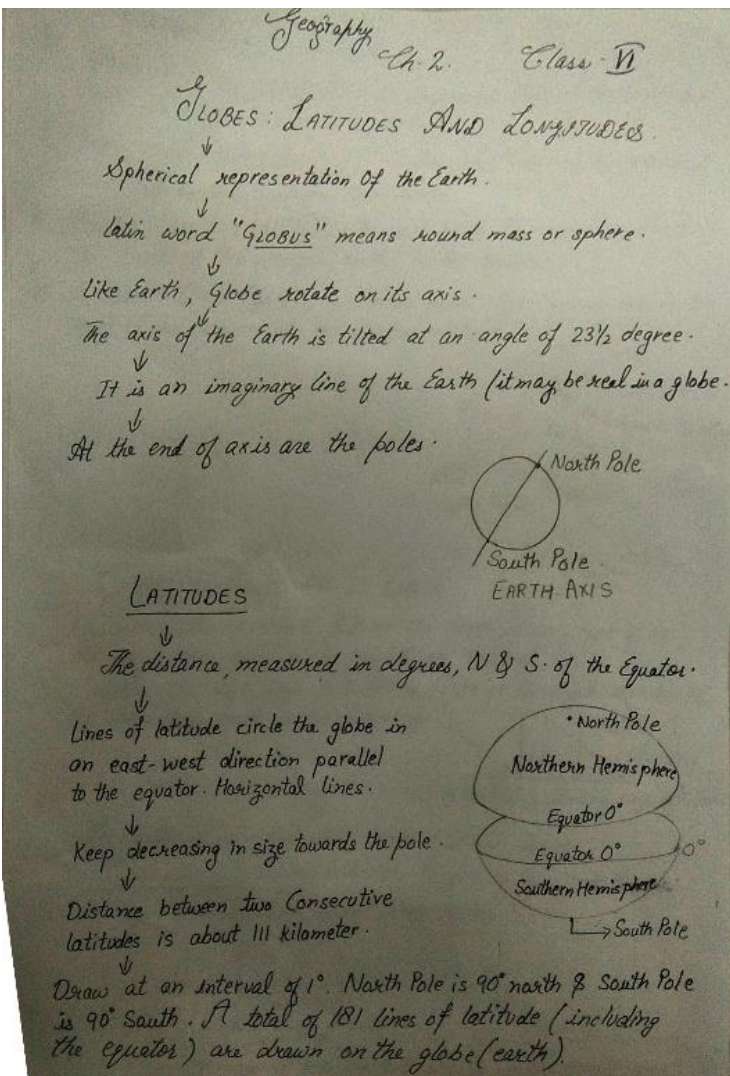 Geography
Ch-2. Class-VI
GLOBES: LATITUDES AND LONGITUDES.
Spherical representation Of the Earth.
Latin word "GLOBUS" means round mass or sphere.
Like Earth, Globe rotate on its axis.
The axis of the Earth is tilted at an angle of 23½ degree.
It is an imaginary line of the Earth (it may be real in a globe.
At the end of axis are the poles.
North Pole
South Pole.
EARTH AXIS
LATITUDES
The distance, measured in degrees, N & S. of the Equator.
Lines of latitude circle the globe in
an east-west direction parallel
to the equator. Horizontal lines.
Keep decreasing in size towards the pole.
Distance between two Consecutive
latitudes is about 111 kilometer.
North Pole
Northern Hemisphere
Equator 0°
Equator 0°
0°
Southern Hemisphere
South Pole
Draw at an interval of 1°. North Pole is 90° north & South Pole
is 90° South. A total of 181 lines of latitude (including
the equator) are drawn on the globe (earth).